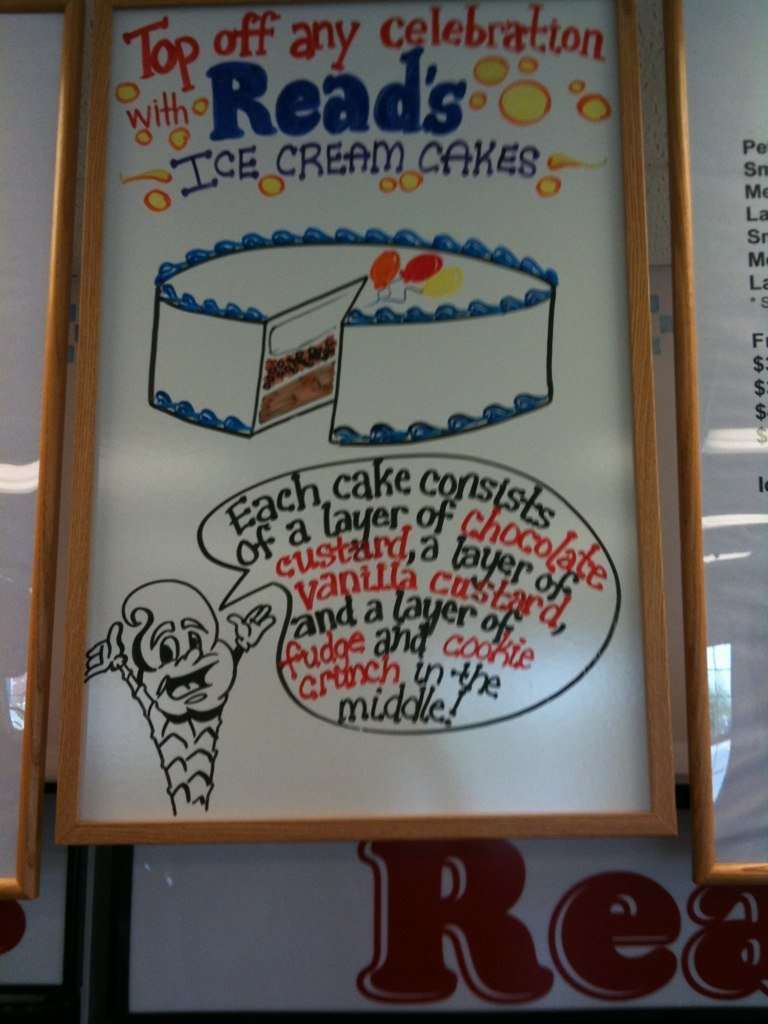 Top off any celebration
with Read's
ICE CREAM CAKES
Each cake consists
of a layer of chocolate
custard, a layer of
vanilla custard,
and a layer of
fudge and cookie
crunch in the
middle!